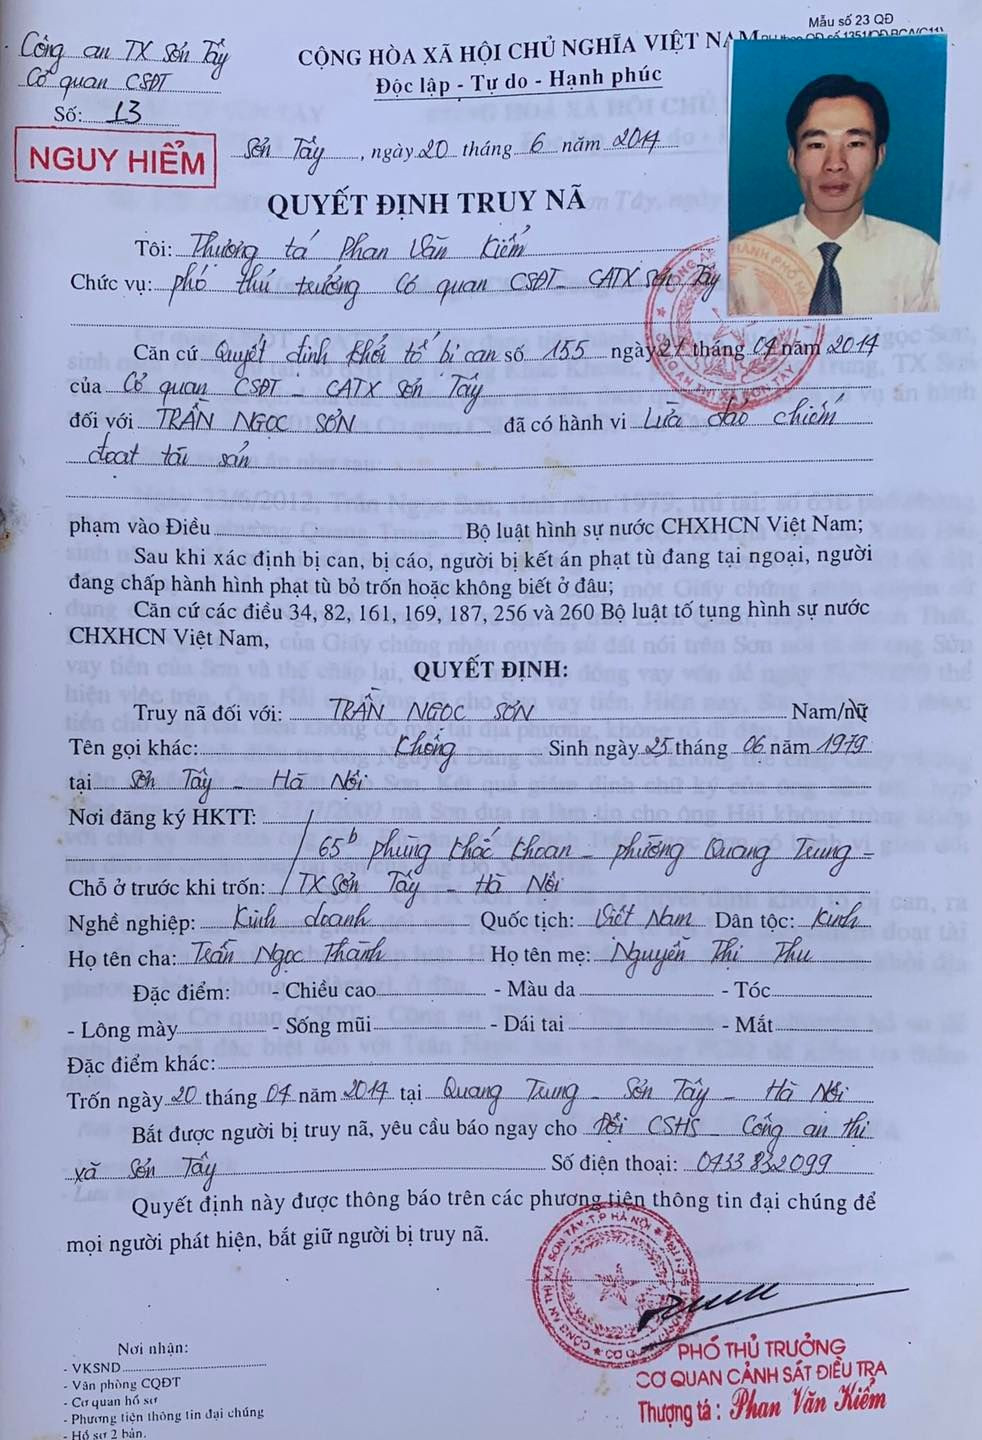 Mẫu số 23 QĐ
Công an TX Sơn Tây
Cơ quan CSĐT
Số: 13
NGUY HIỂM
CỘNG HÒA XÃ HỘI CHỦ NGHĨA VIỆT NAM
Độc lập - Tự do - Hạnh phúc
Sơn Tây, ngày 20 tháng 6 năm 2014
QUYẾT ĐỊNH TRUY NÃ
Tôi: Thượng tá Phan Văn Kiểm
Chức vụ: phó thủ trưởng Cơ quan CSĐT - CATX Sơn Tây
Căn cứ Quyết định khởi tố bị can số 155 ngày 21 tháng 04 năm 2014
của Cơ quan CSĐT - CATX Sơn Tây
đối với TRẦN NGỌC SƠN đã có hành vi Lừa đảo chiếm
đoạt tài sản
phạm vào Điều Bộ luật hình sự nước CHXHCN Việt Nam;
Sau khi xác định bị can, bị cáo, người bị kết án phạt tù đang tại ngoại, người
đang chấp hành hình phạt tù bỏ trốn hoặc không biết ở đâu;
Căn cứ các điều 34, 82, 161, 169, 187, 256 và 260 Bộ luật tố tụng hình sự nước
CHXHCN Việt Nam,
QUYẾT ĐỊNH:
Truy nã đối với: TRẦN NGỌC SƠN Nam/nữ
Tên gọi khác: Không Sinh ngày 25 tháng 06 năm 1979
tại Sơn Tây - Hà Nội
Nơi đăng ký HKTT:
65b phùng khắc khoan - phường Quang Trung -
Chỗ ở trước khi trốn: TX Sơn Tây - Hà Nội
Nghề nghiệp: Kinh doanh Quốc tịch: Việt Nam Dân tộc: Kinh
Họ tên cha: Trần Ngọc Thành Họ tên mẹ: Nguyễn Thị Thu
Đặc điểm: - Chiều cao - Màu da - Tóc
- Lông mày - Sống mũi - Dái tai - Mắt
Đặc điểm khác:
Trốn ngày 20 tháng 04 năm 2014 tại Quang Trung - Sơn Tây - Hà Nội
Bắt được người bị truy nã, yêu cầu báo ngay cho Đội CSHS - Công an thị
xã Sơn Tây Số điện thoại: 0433 832099
Quyết định này được thông báo trên các phương tiện thông tin đại chúng để
mọi người phát hiện, bắt giữ người bị truy nã.
PHÓ THỦ TRƯỞNG
CƠ QUAN CẢNH SÁT ĐIỀU TRA
Thượng tá: Phan Văn Kiểm
Nơi nhận:
- VKSND
- Văn phòng CQĐT
- Cơ quan hồ sơ
- Phương tiện thông tin đại chúng
- Hồ sơ 2 bản.